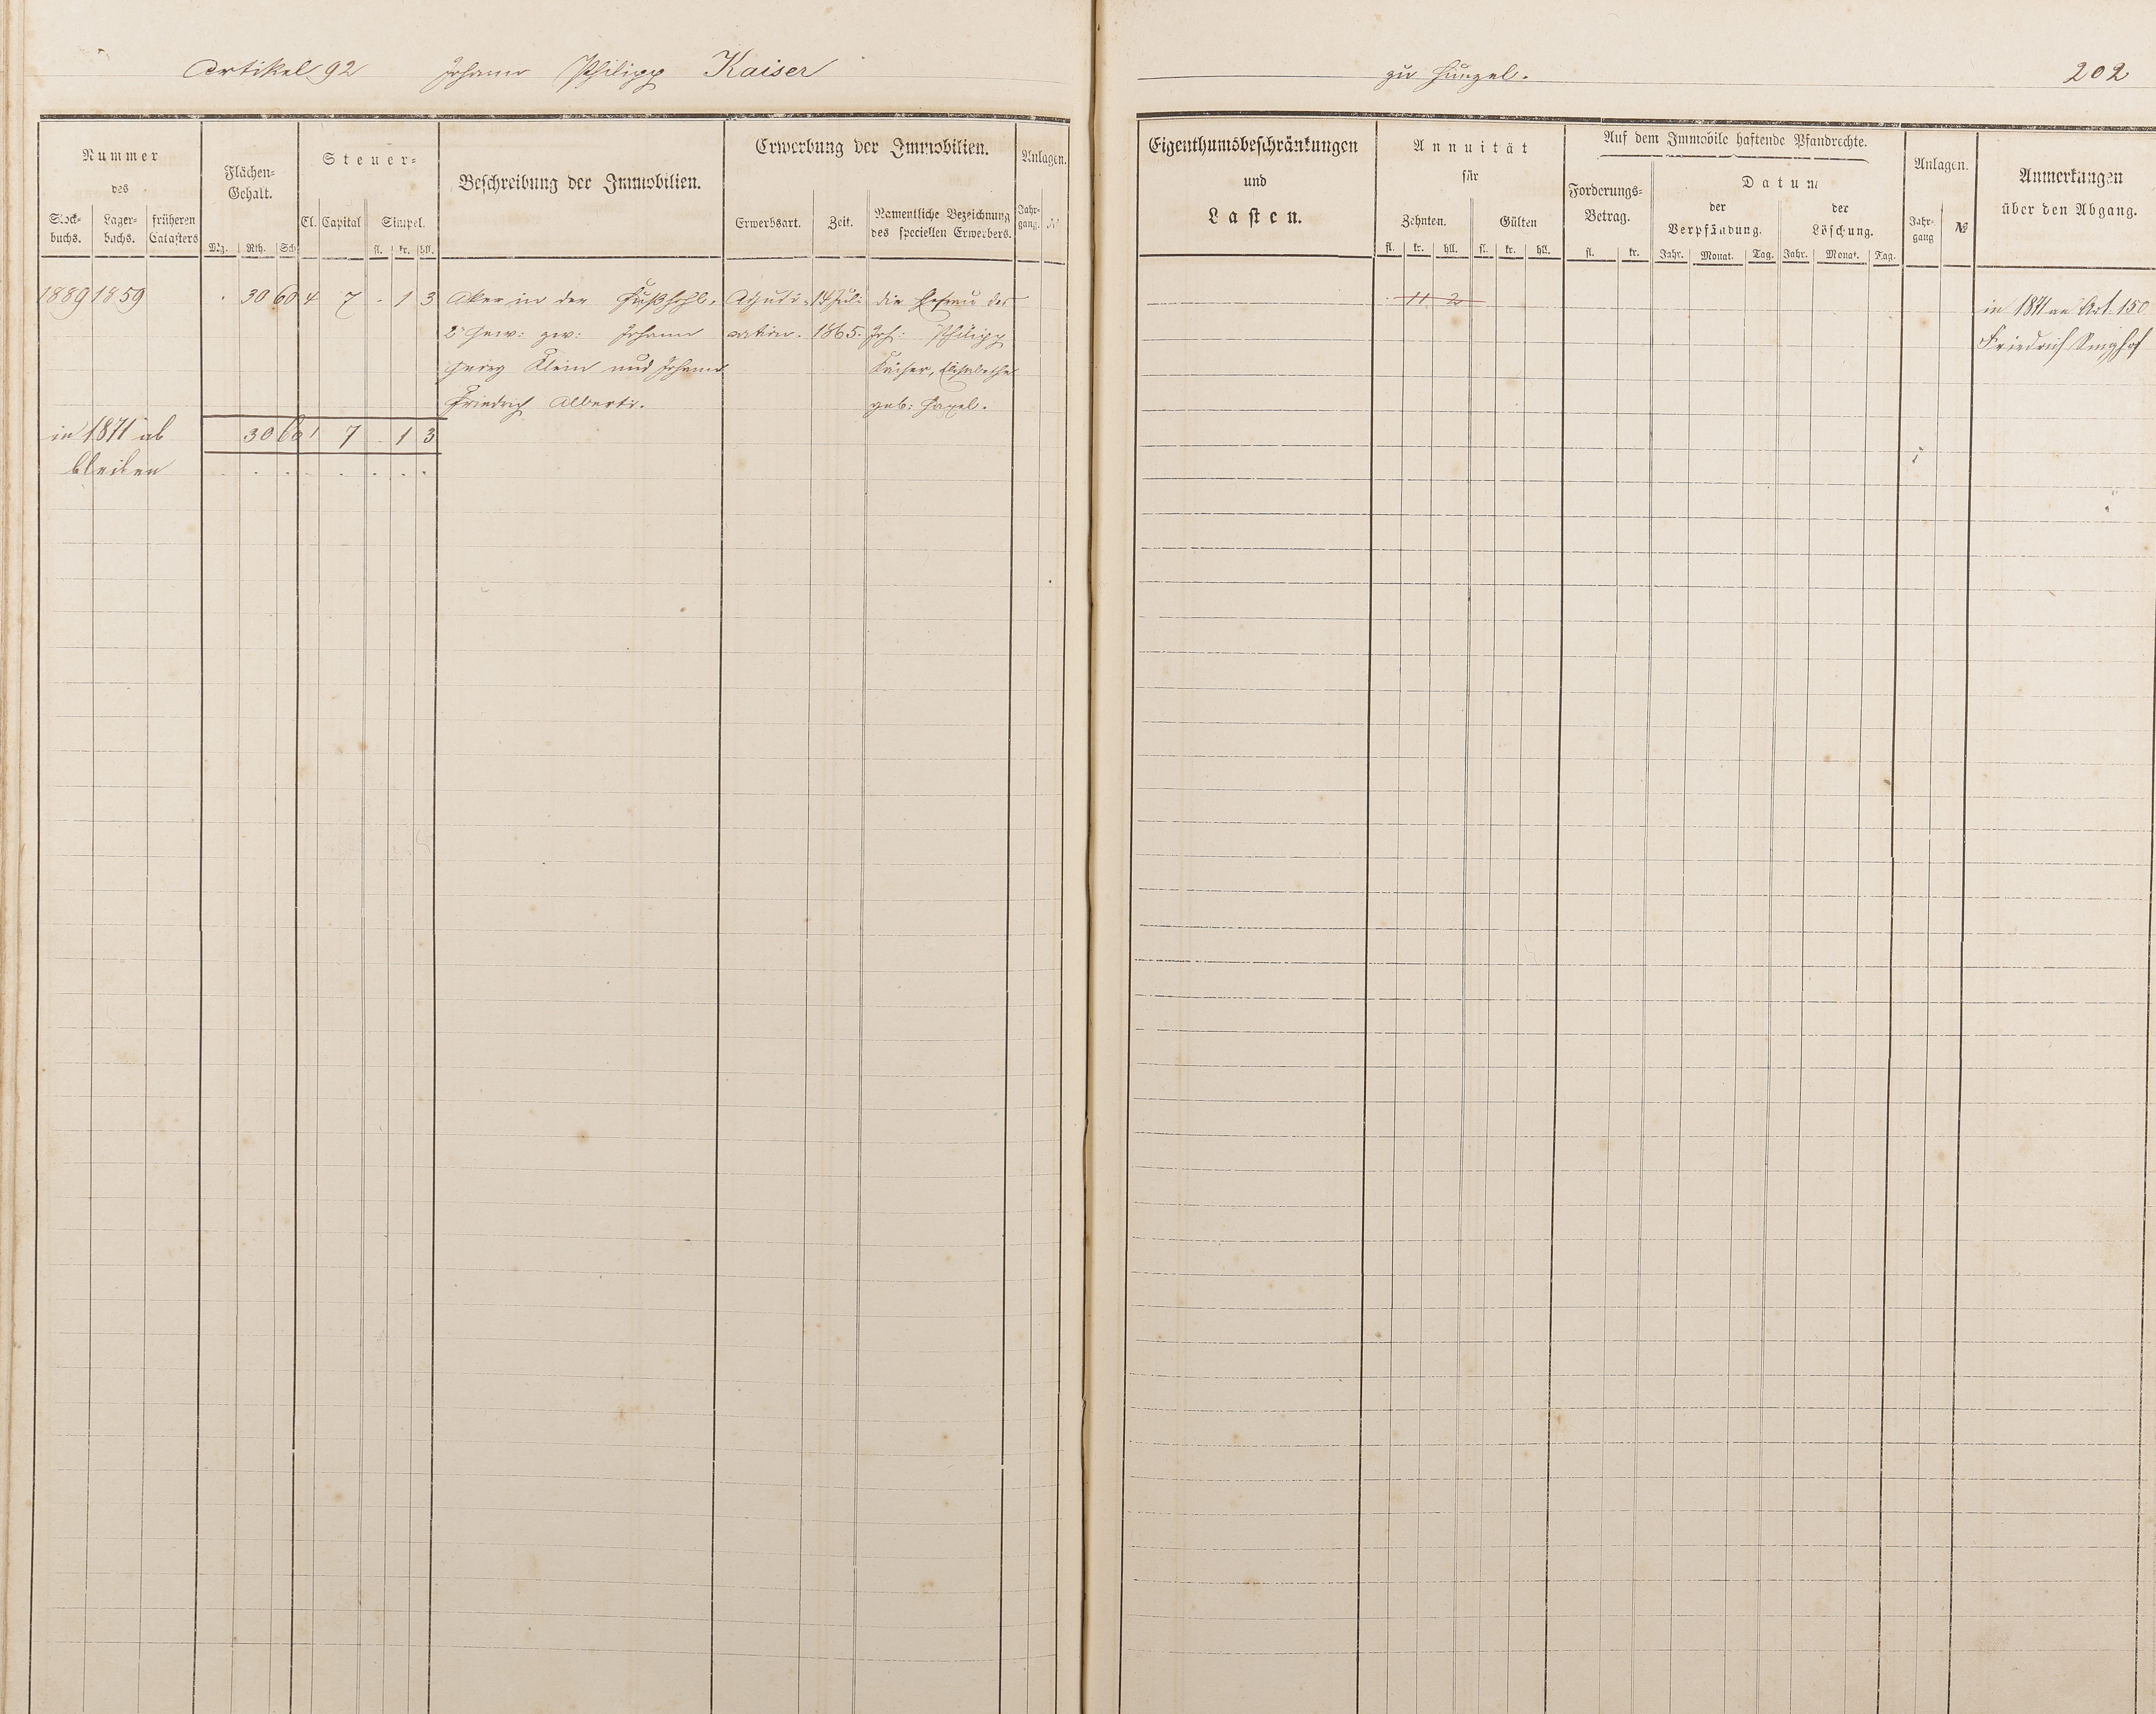 Artikel 92 Johann Philipp Kaiser
zu Hunzel.
202
Nummer
des
Stock-
buchs.
Lager-
buchs.
früheren
Catasters
Flächen-
Gehalt.
Mg. Rth. Sch.
Steuer-
Cl. Capital Simpel.
fl. kr. hll.
Beschreibung der Immobilien.
Erwerbung der Immobilien.
Erwerbsart. Zeit.
Namentliche Bezeichnung
des speciellen Erwerbers.
Anlagen.
Jahr-
gang. №
1889 1859 . 30 60 4 7 - 1 3 Aker in der Fußhohl, Adjudi- 14 Juli die Ehefrau des
2r Gew: zw: Johann cation. 1865. Joh: Philipp
Georg Klein und Johann Kaiser, Elisabethe
Friedrich Alberti. geb:
in 1871 ab 30 60 7 - 1 3
bleiben . . . . . . .
Eigenthumsbeschränkungen
und
Lasten.
Annuität
für
Zehnten. Gülten
fl. kr. hll. fl. kr. hll.
Auf dem Immobile haftende Pfandrechte.
Forderungs-
Betrag.
fl. kr.
Datum
der
Verpfändung.
der
Löschung.
Jahr. Monat. Tag. Jahr. Monat. Tag.
Anlagen.
Jahr-
gang №
Anmerkungen
über den Abgang.
11 2
in 1871 an Art. 150
Friedrich Singhof